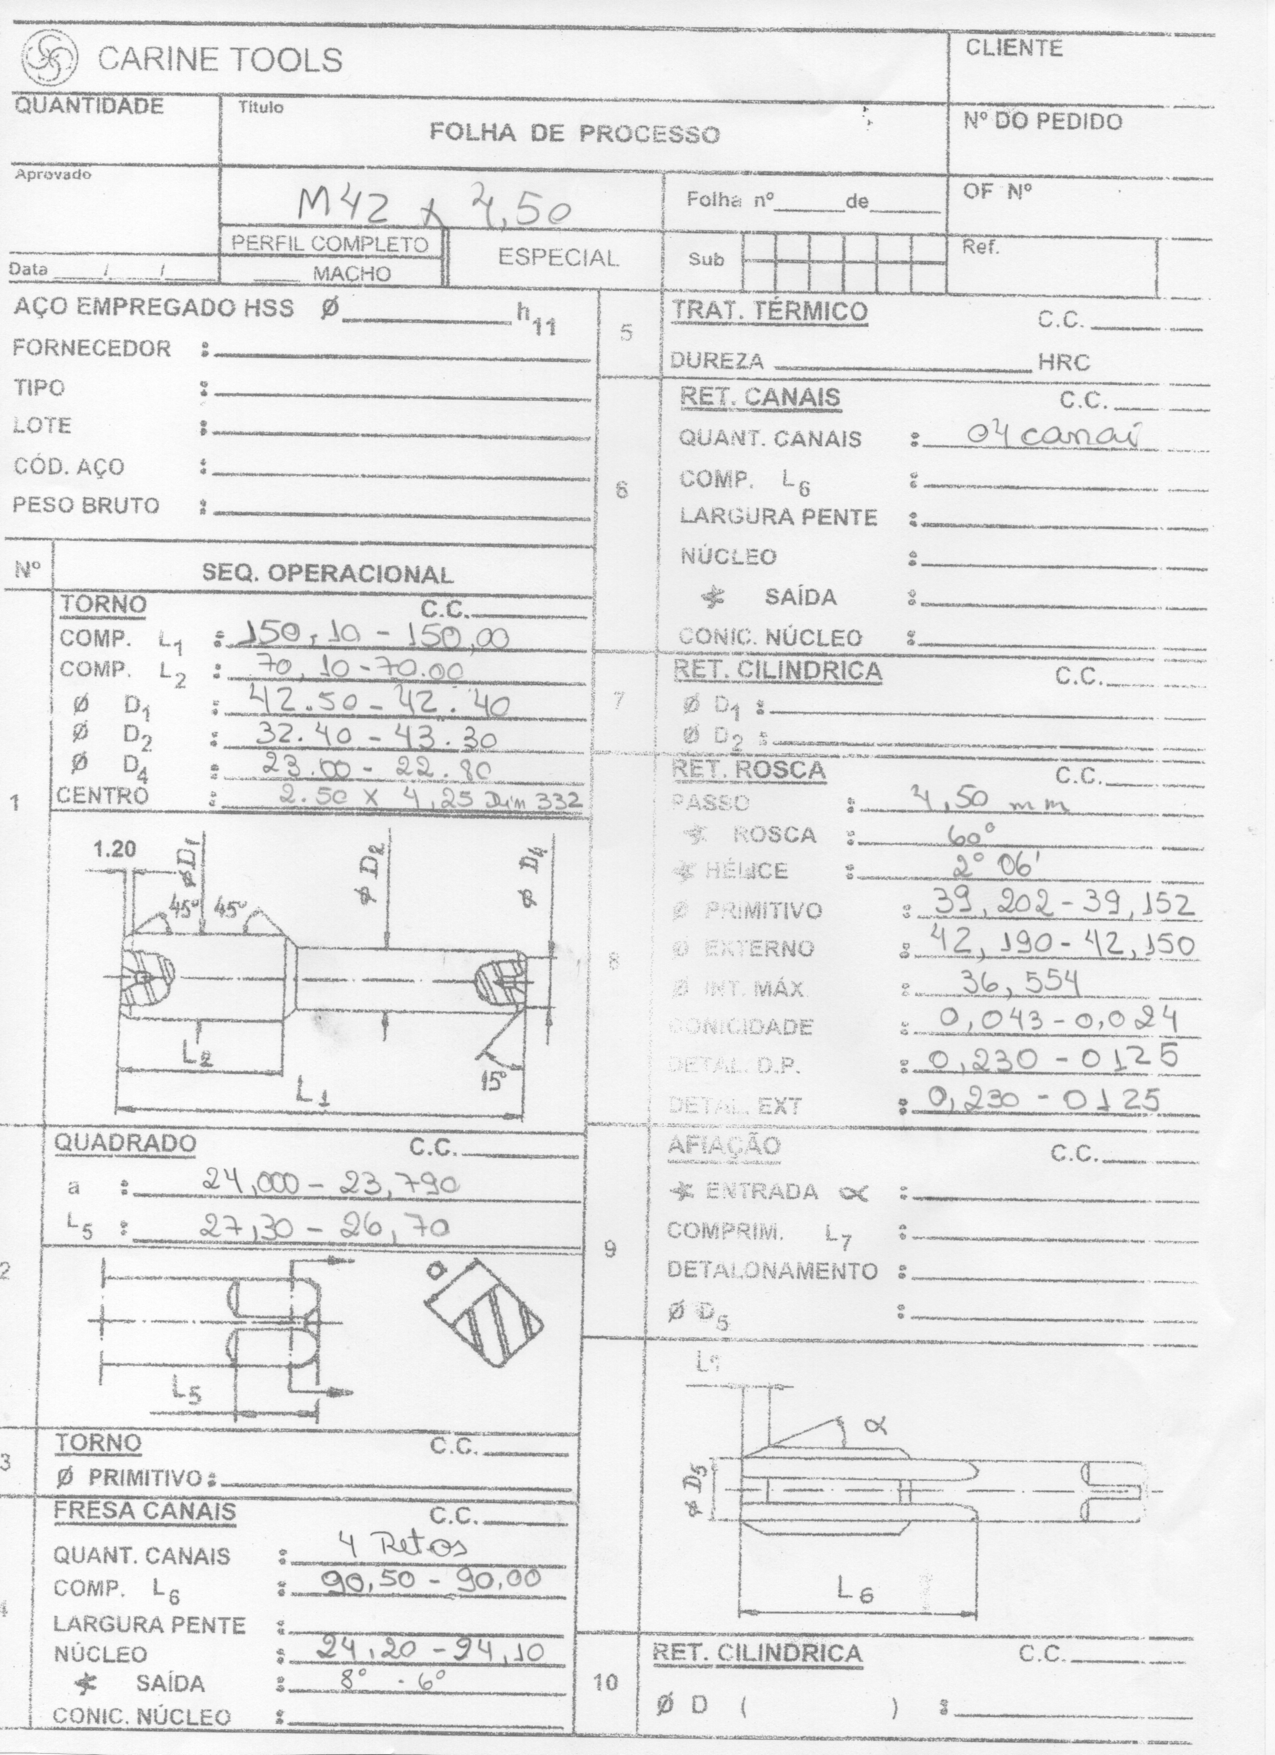 CARINE TOOLS
CLIENTE
QUANTIDADE
Título
FOLHA DE PROCESSO
Nº DO PEDIDO
Aprovado
M42 x 4,50
Folha nº ____ de ____
OF Nº
PERFIL COMPLETO
ESPECIAL
Sub
Ref.
Data ___/___/___
___ MACHO
AÇO EMPREGADO HSS Ø ____ h11
FORNECEDOR :
TIPO :
LOTE :
CÓD. AÇO :
PESO BRUTO :
Nº SEQ. OPERACIONAL
1
TORNO C.C.
COMP. L1 : 150,10 - 150,00
COMP. L2 : 70,10-70.00
Ø D1 : 42.50 - 42.40
Ø D2 : 32.40 - 43.30
Ø D4 : 23.00 - 22.80
CENTRO : 2.50 x 4,25 Din 332
1.20
Ø D1
Ø D2
Ø D4
45° 45°
L2
15°
L1
2
QUADRADO C.C.
a : 24,000 - 23,790
L5 : 27,30 - 26,70
a
L5
3
TORNO C.C.
Ø PRIMITIVO :
4
FRESA CANAIS C.C.
QUANT. CANAIS : 4 Retos
COMP. L6 : 90,50 - 90,00
LARGURA PENTE :
NÚCLEO : 24,20 - 24,10
SAÍDA : 8° - 6°
CONIC. NÚCLEO :
5
TRAT. TÉRMICO C.C.
DUREZA ____ HRC
6
RET. CANAIS C.C.
QUANT. CANAIS : 04 canai
COMP. L6 :
LARGURA PENTE :
NÚCLEO :
SAÍDA :
CONIC. NÚCLEO :
7
RET. CILINDRICA C.C.
Ø D1 :
Ø D2 :
8
RET. ROSCA C.C.
PASSO : 4,50 mm
ROSCA : 60°
HÉLICE : 2° 06'
Ø PRIMITIVO : 39,202 - 39,152
Ø EXTERNO : 42,190 - 42,150
Ø INT. MÁX : 36,554
CONICIDADE : 0,043 - 0,024
DETAL. D.P. : 0,230 - 0125
DETAL. EXT : 0,230 - 0125
9
AFIAÇÃO C.C.
ENTRADA α :
COMPRIM. L7 :
DETALONAMENTO :
Ø D5 :
α
Ø D5
L6
10
RET. CILINDRICA C.C.
Ø D ( ) :